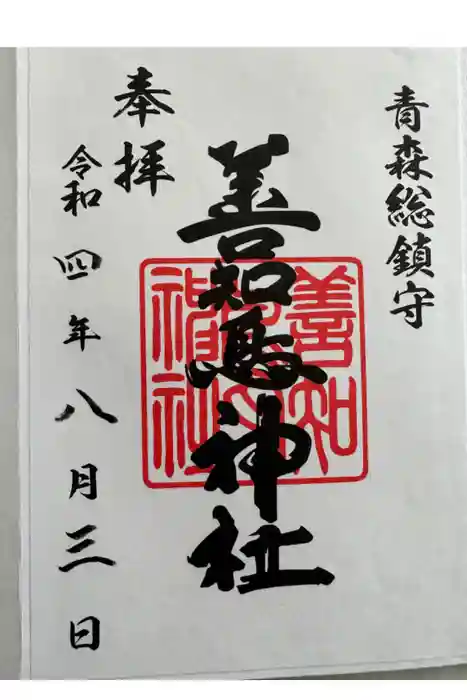 青森総鎮守
奉拝
善知鳥神社
令和四年八月三日